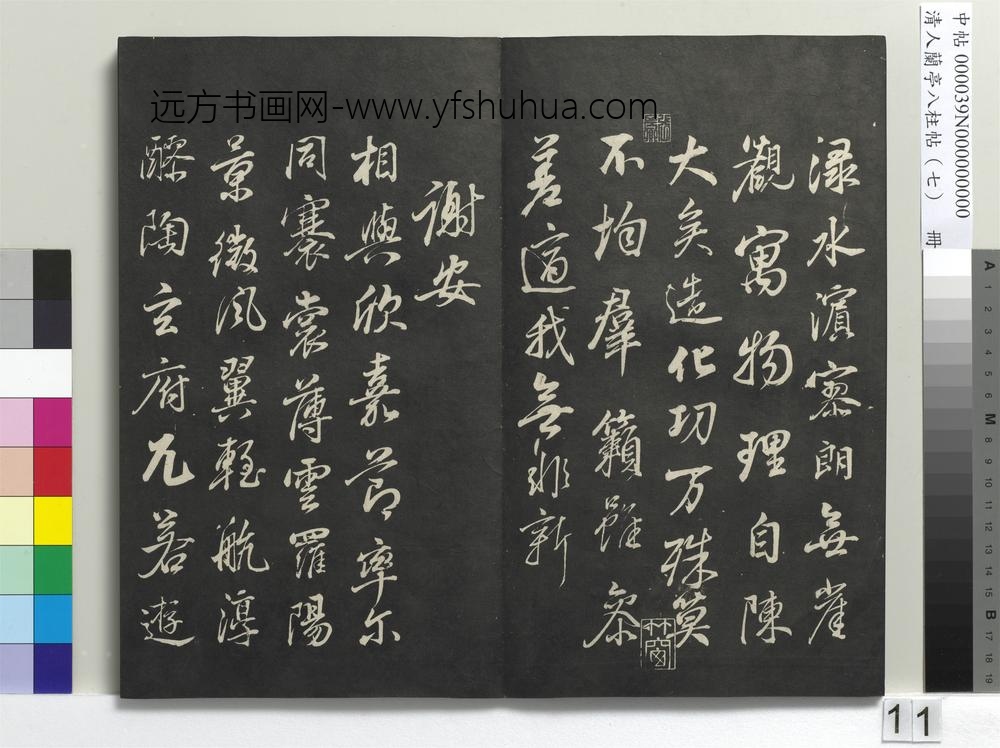 渌水濵寥朗無崖
觀寓物理自陳
大矣造化功万殊莫
不均羣籟雖叅
差適我無非新
謝安
相與欣嘉莭率尔
同褰裳薄雲羅陽
景微風翼輕航淳
醪陶玄府兀若遊
远方书画网-www.yfshuhua.com
中帖000039N000000000
清人蘭亭八柱帖(七) 冊
11
A 1 2 3 4 5 6 M 8 9 10 11 12 13 14 15 B 17 18 19